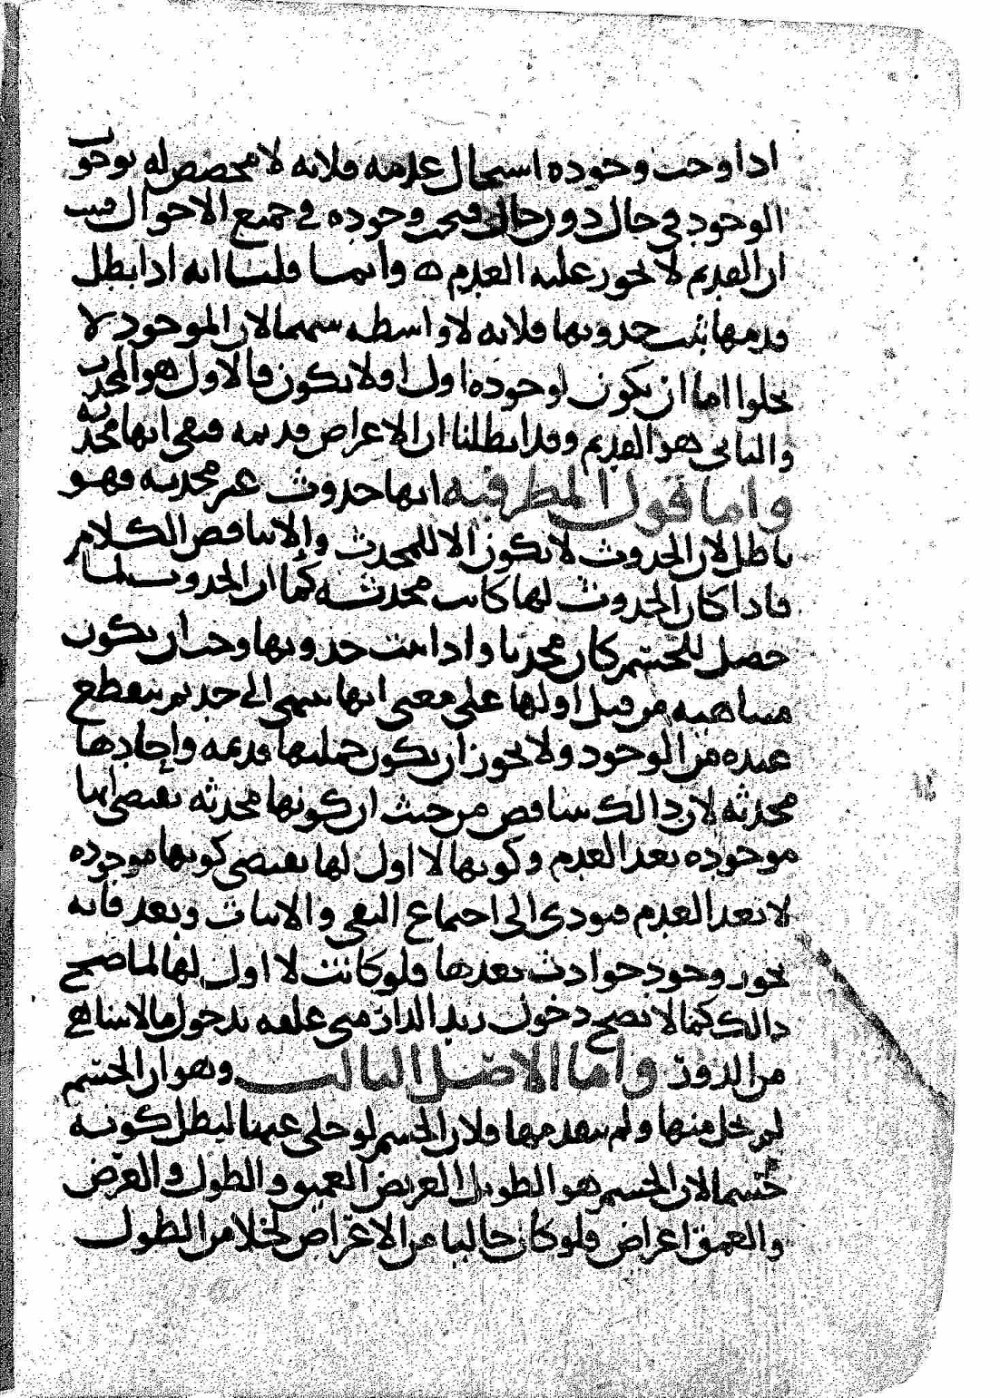 اذا وجب وجوده استحال عدمه فلانه لا مخصص له بوجوب
الوجود في حال دون حال فيجب وجوده في جميع الاحوال فثبت
ان القديم لا يجوز عليه العدم ه وانما قلنا انه اذا بطل
قدمها ثبت حدوثها فلانه لا واسطه بينهما لان الموجود لا
يخلوا اما ان يكون لوجوده اول او لا يكون فالاول هو المحدث
والثاني هو القديم وقد ابطلنا ان الاعراض قديمه فبقي انها محدثه
واما قول المطرفيه انها حدوث غير محدثه فهو
باطل لان الحدوث لا يكون الا للمحدث والا تناقض الكلام
فاذا كان الحدوث لها كانت محدثه كما ان الحدوث لما
حصل للجسم كان محدثا واذا ثبت حدوثها وجب ان يكون
متناهيه من قبل اولها على معنى انها تنتهي الى حد ثم ينقطع
عنده من الوجود ولا يجوز ان يكون جملتها قديمه واحادها
محدثه لان ذالك تناقض من حيث ان كونها محدثه يقتضي انها
موجوده بعد العدم وكونها لا اول لها يقتضي كونها موجوده
لا بعد العدم فيودي الى اجتماع النفي والاثبات وبعد فانه
يجوز وجود حوادث بعدها فلو كانت لا اول لها لما صح
ذالك كما لا يصح دخول زيد الدار متى علقه بدخول ما لا يتناهى
من الدور واما الاصل الثالث وهو ان الجسم
لم يخل منها ولم يتقدمها فلان الجسم لو خلى عنها لبطل كونه
جسما لان الجسم هو الطويل العريض العميق والطول والعرض
والعمق اعراض فلو كان خاليا من الاعراض لخلا من الطول